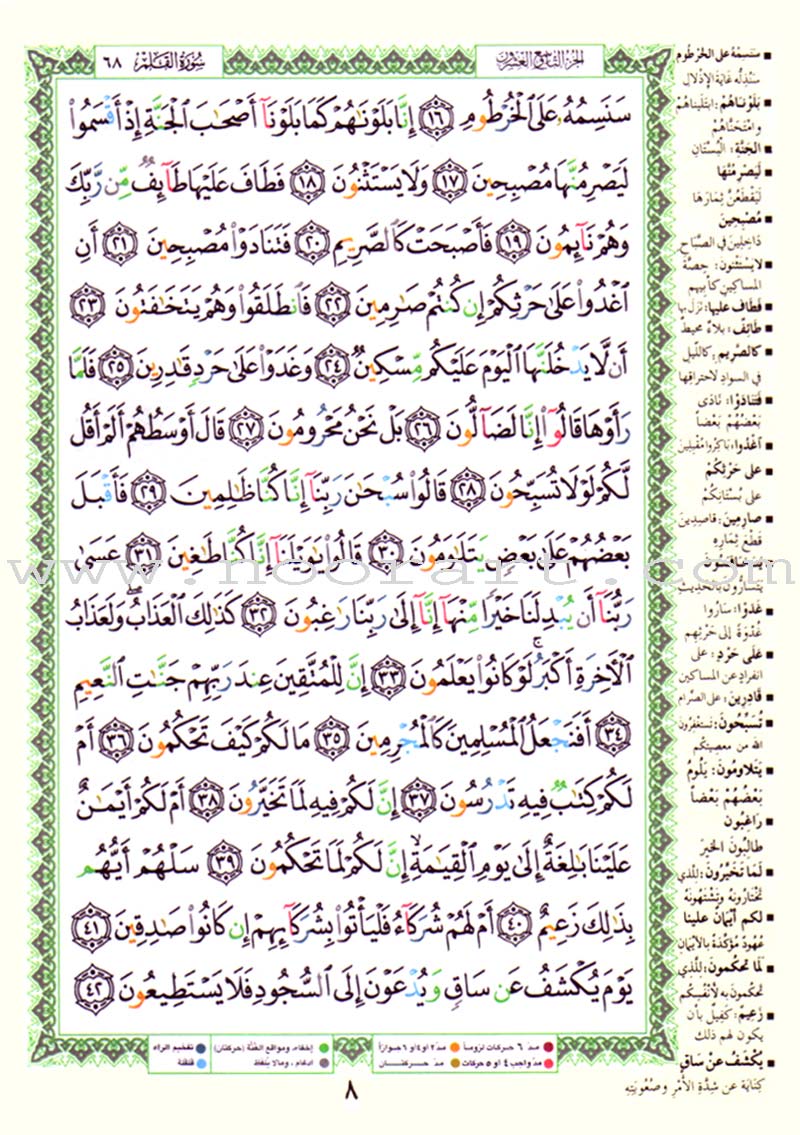 الجزء التاسع والعشرون
سُورَةُ القَلَم ٦٨
سَنَسِمُهُۥ عَلَى ٱلْخُرْطُومِ ١٦ إِنَّا بَلَوْنَٰهُمْ كَمَا بَلَوْنَآ أَصْحَٰبَ ٱلْجَنَّةِ إِذْ أَقْسَمُوا۟
لَيَصْرِمُنَّهَا مُصْبِحِينَ ١٧ وَلَا يَسْتَثْنُونَ ١٨ فَطَافَ عَلَيْهَا طَآئِفٌ مِّن رَّبِّكَ
وَهُمْ نَآئِمُونَ ١٩ فَأَصْبَحَتْ كَٱلصَّرِيمِ ٢٠ فَتَنَادَوْا۟ مُصْبِحِينَ ٢١ أَنِ
ٱغْدُوا۟ عَلَىٰ حَرْثِكُمْ إِن كُنتُمْ صَٰرِمِينَ ٢٢ فَٱنطَلَقُوا۟ وَهُمْ يَتَخَٰفَتُونَ ٢٣
أَن لَّا يَدْخُلَنَّهَا ٱلْيَوْمَ عَلَيْكُم مِّسْكِينٌ ٢٤ وَغَدَوْا۟ عَلَىٰ حَرْدٍ قَٰدِرِينَ ٢٥ فَلَمَّا
رَأَوْهَا قَالُوٓا۟ إِنَّا لَضَآلُّونَ ٢٦ بَلْ نَحْنُ مَحْرُومُونَ ٢٧ قَالَ أَوْسَطُهُمْ أَلَمْ أَقُل
لَّكُمْ لَوْلَا تُسَبِّحُونَ ٢٨ قَالُوا۟ سُبْحَٰنَ رَبِّنَآ إِنَّا كُنَّا ظَٰلِمِينَ ٢٩ فَأَقْبَلَ
بَعْضُهُمْ عَلَىٰ بَعْضٍ يَتَلَٰوَمُونَ ٣٠ قَالُوا۟ يَٰوَيْلَنَآ إِنَّا كُنَّا طَٰغِينَ ٣١ عَسَىٰ
رَبُّنَآ أَن يُبْدِلَنَا خَيْرًا مِّنْهَآ إِنَّآ إِلَىٰ رَبِّنَا رَٰغِبُونَ ٣٢ كَذَٰلِكَ ٱلْعَذَابُ ۖ وَلَعَذَابُ
ٱلْءَاخِرَةِ أَكْبَرُ ۚ لَوْ كَانُوا۟ يَعْلَمُونَ ٣٣ إِنَّ لِلْمُتَّقِينَ عِندَ رَبِّهِمْ جَنَّٰتِ ٱلنَّعِيمِ
٣٤ أَفَنَجْعَلُ ٱلْمُسْلِمِينَ كَٱلْمُجْرِمِينَ ٣٥ مَا لَكُمْ كَيْفَ تَحْكُمُونَ ٣٦ أَمْ
لَكُمْ كِتَٰبٌ فِيهِ تَدْرُسُونَ ٣٧ إِنَّ لَكُمْ فِيهِ لَمَا تَخَيَّرُونَ ٣٨ أَمْ لَكُمْ أَيْمَٰنٌ
عَلَيْنَا بَٰلِغَةٌ إِلَىٰ يَوْمِ ٱلْقِيَٰمَةِ ۙ إِنَّ لَكُمْ لَمَا تَحْكُمُونَ ٣٩ سَلْهُمْ أَيُّهُم
بِذَٰلِكَ زَعِيمٌ ٤٠ أَمْ لَهُمْ شُرَكَآءُ فَلْيَأْتُوا۟ بِشُرَكَآئِهِمْ إِن كَانُوا۟ صَٰدِقِينَ ٤١
يَوْمَ يُكْشَفُ عَن سَاقٍ وَيُدْعَوْنَ إِلَى ٱلسُّجُودِ فَلَا يَسْتَطِيعُونَ ٤٢
■ سَنَسِمُهُ على الخرطُوم
سَنُذِلُّه غايَةَ الإذْلالِ
■ بَلَوْنَاهُمْ: ابتَلَيناهُمْ
وامْتَحَنَّاهُمْ
■ الجَنَّة: الْبُسْتَانِ
■ لَيَصْرِمُنَّهَا
لَيَقْطَعُنَّ ثِمَارَهَا
■ مُصْبِحينَ
دَاخِلِينَ في الصَّبَاحِ
■ لايَسْتَثْنُون: حِصَّةَ
المساكين كأبيهم
■ فَطاف عليها: نَزَلَ بها
■ طَائِفٌ: بلاءٌ محيطٌ
■ كالصريم: كاللّيل
في السوادِ لاحتراقِها
■ فَتَنَادَوْا: نادَى
بَعْضُهُمْ بَعْضاً
■ اغْدُوا: باكِرُوا مُقْبِلينَ
■ على حَرْثِكُمْ
على بُسْتَانِكُمْ
■ صارِمينَ: قاصِدِينَ
قَطْعَ ثِمَارِهِ
■ يَتَخَافَتُونَ
يَتَسارُّون بالحديثِ
■ غَدَوْا: سَارُوا
غُدْوَةً إلى حَرْثِهم
■ عَلَى حَرْدٍ: على
انفرادٍ عن المساكين
■ قَادِرينَ: على الصِّرام
■ تُسَبِّحُونَ: تستغفِرُونَ
الله من معصيتكُم
■ يَتَلاومُونَ: يَلُومُ
بَعْضُهُمْ بَعْضاً
■ راغبُون
طالِبُون الخيرَ
■ لَمَا تَخَيَّرُونَ: للَّذي
تَخْتَارُونَهُ وتَشْتَهُونَهُ
■ لكم أيْمَانٌ علينا
عُهُودٌ مُؤَكَّدَةٌ بالأَيْمَانِ
■ لَمَا تحكمون: لِلَّذِي
تَحكمونَ به لأنْفُسِكم
■ زَعِيمٌ: كَفِيلٌ بأَن
يكون لهم ذلك
■ يُكْشَفُ عَنْ سَاقٍ
كِنَايَة عن شِدَّةِ الأَمْرِ وصُعُوبَتِهِ
www.noorart.com
● مدّ ٦ حركات لزوماً ● مدّ ٢ أو ٤ أو ٦ جوازاً
● مدّ واجب ٤ أو ٥ حركات ● مدّ حركتان
● إخفاء، ومواقع الغُنَّة (حركتان) ● تفخيم الراء
● ادغام، ومالا يُلفظ ● قلقلة
٨